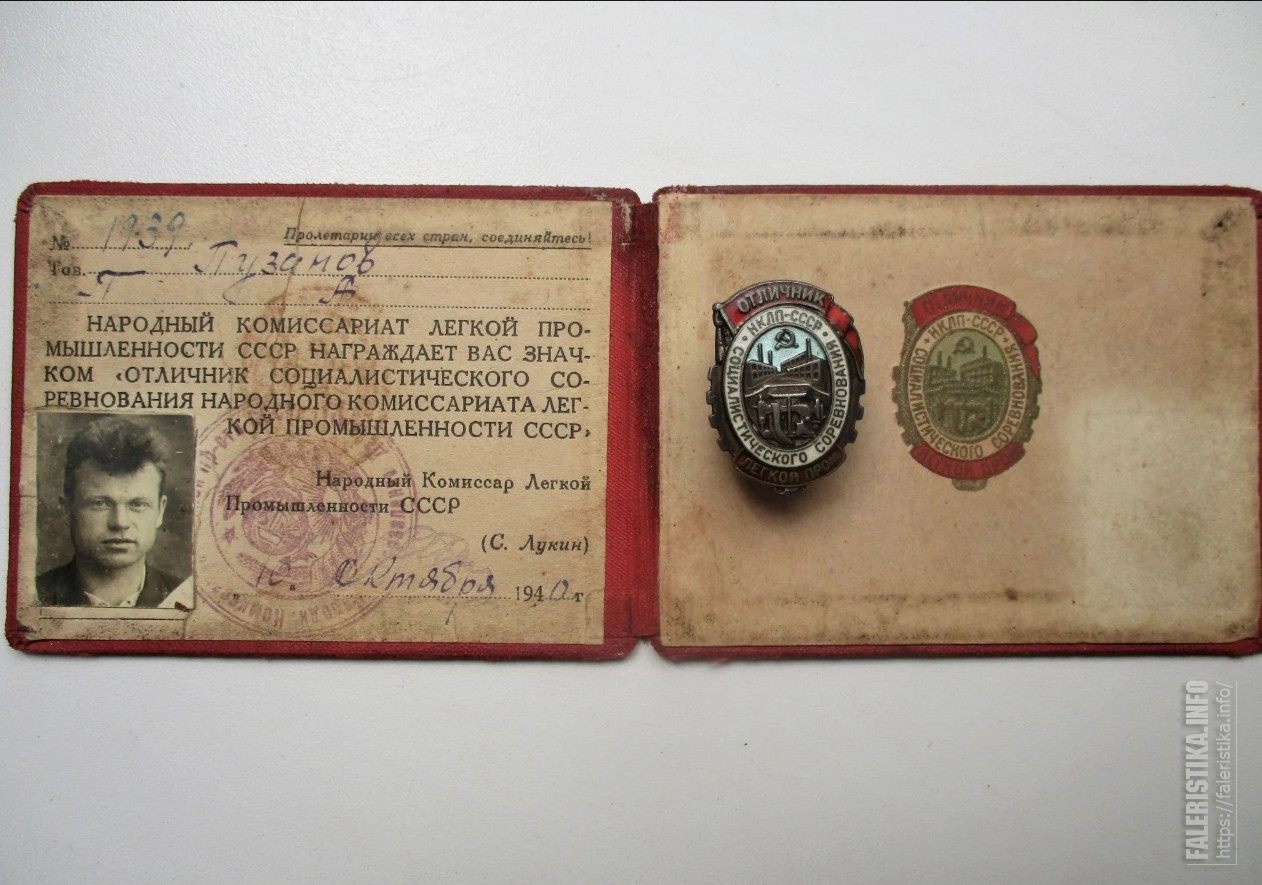 № 1939
Пролетарии всех стран, соединяйтесь!
Тов. Пузанов
Г А
НАРОДНЫЙ КОМИССАРИАТ ЛЕГКОЙ ПРО-
МЫШЛЕННОСТИ СССР НАГРАЖДАЕТ ВАС ЗНАЧ-
КОМ «ОТЛИЧНИК СОЦИАЛИСТИЧЕСКОГО СО-
РЕВНОВАНИЯ НАРОДНОГО КОМИССАРИАТА ЛЕГ-
КОЙ ПРОМЫШЛЕННОСТИ СССР»
Народный Комиссар Легкой
Промышленности СССР
(С. Лукин)
„10" Октября 1940 г
ОТЛИЧНИК
НКЛП-СССР
СОЦИАЛИСТИЧЕСКОГО СОРЕВНОВАНИЯ
ЛЕГКОЙ ПРОМ
ОТЛИЧНИК
НКЛП-СССР
СОЦИАЛИСТИЧЕСКОГО СОРЕВНОВАНИЯ
ЛЕГКОЙ ПРОМ
FALERISTIKA.INFO
https://faleristika.info/